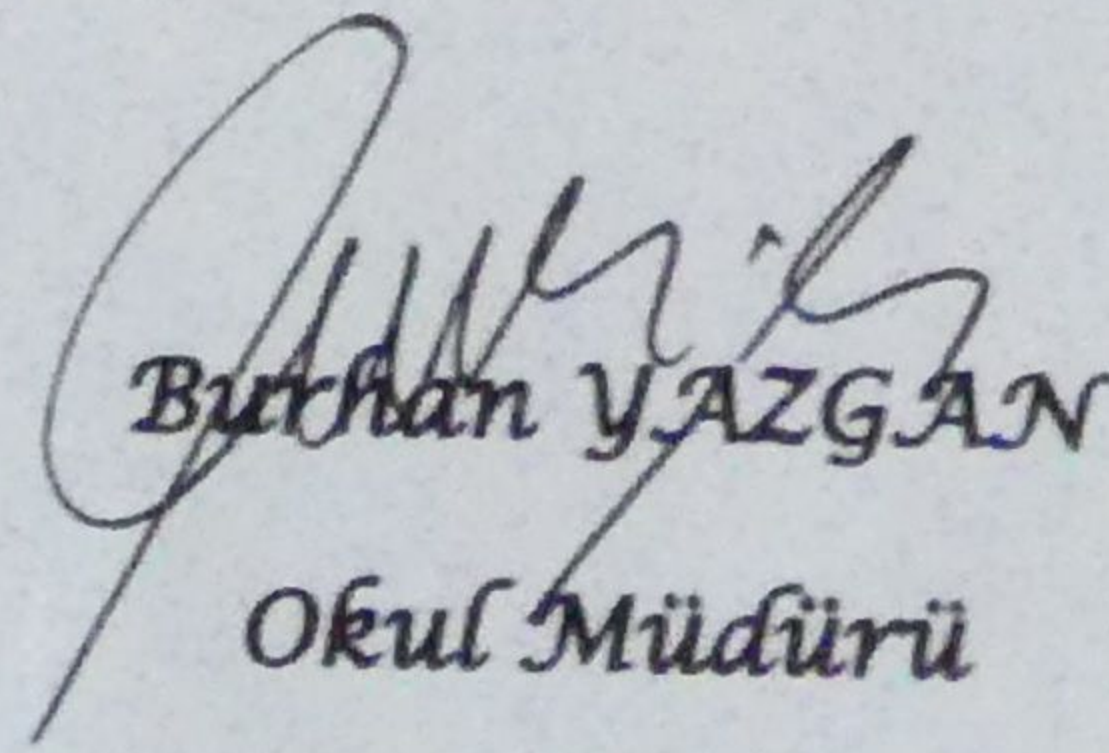 Burhan YAZGAN
Okul Müdürü